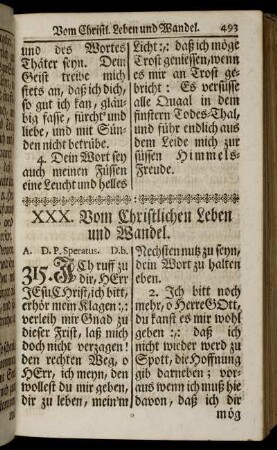 Vom Christl. Leben und Wandel. 493
und des Wortes
Thäter seyn. Dein
Geist treibe mich
stets an, daß ich dich,
so gut ich kan, gläu-
big fasse, fürcht und
liebe, und mit Sün-
den nicht betrübe.
4. Dein Wort sey
auch meinen Füssen
eine Leucht und helles
Licht:,: daß ich möge
Trost geniessen, wenn
es mir an Trost ge-
bricht: Es versüsse
alle Quaal in dem
finstern Todes-Thal,
und führ endlich aus
dem Leide mich zur
süssen Himmels-
Freude.
XXX. Vom Christlichen Leben
und Wandel.
A. D. P. Speratus. D.b.
315. ICh ruff zu
dir, HErr
JEsu Christ, ich bitt,
erhör mein Klagen:,:
verleih mir Gnad zu
dieser Frist, laß mich
doch nicht verzagen!
den rechten Weg, o
HErr, ich meyn, den
wollest du mir geben,
dir zu leben, mein'm
Nechsten nutz zu seyn,
dein Wort zu halten
eben.
2. Ich bitt noch
mehr, o HErre GOtt,
du kanst es mir wohl
geben:,: daß ich
nicht wieder werd zu
Spott, die Hoffnung
gib darneben; vor-
aus wenn ich muß hie
davon, daß ich dir
mög